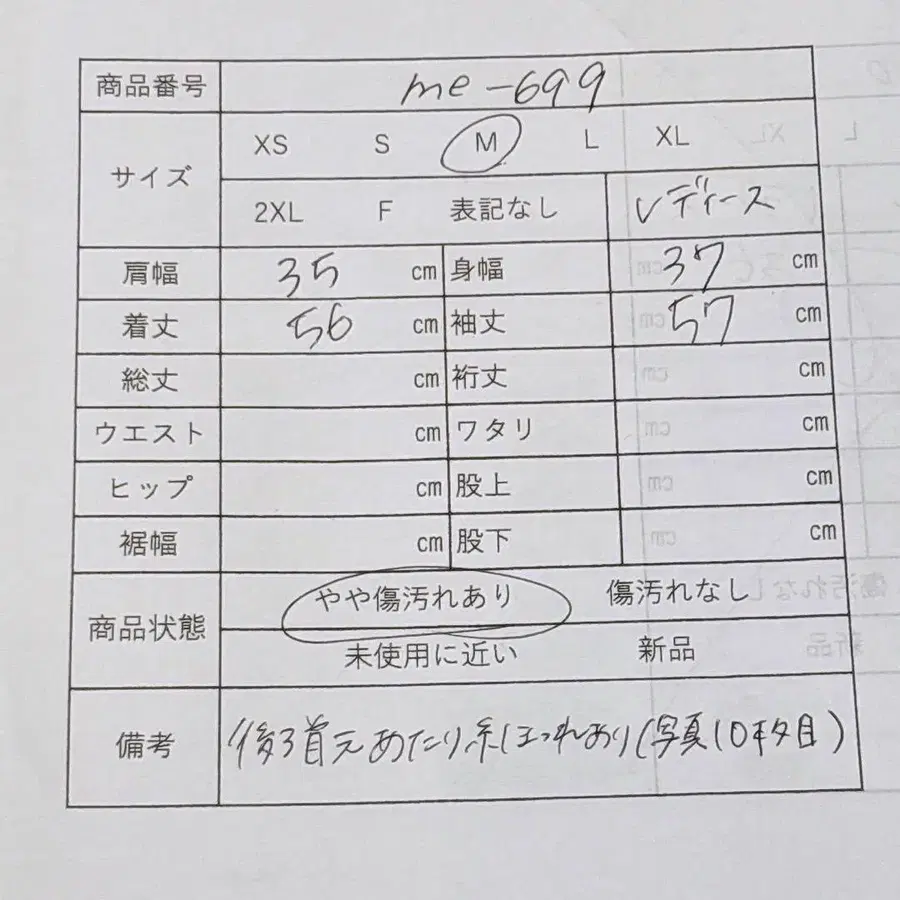 商品番号 me-699
サイズ XS S M L XL
2XL F 表記なし レディース
肩幅 35 cm 身幅 37 cm
着丈 56 cm 袖丈 57 cm
総丈 cm 裄丈 cm
ウエスト cm ワタリ cm
ヒップ cm 股上 cm
裾幅 cm 股下 cm
商品状態 やや傷汚れあり 傷汚れなし
未使用に近い 新品
備考 後ろ首元あたり糸ほつれあり(写真10枚目)